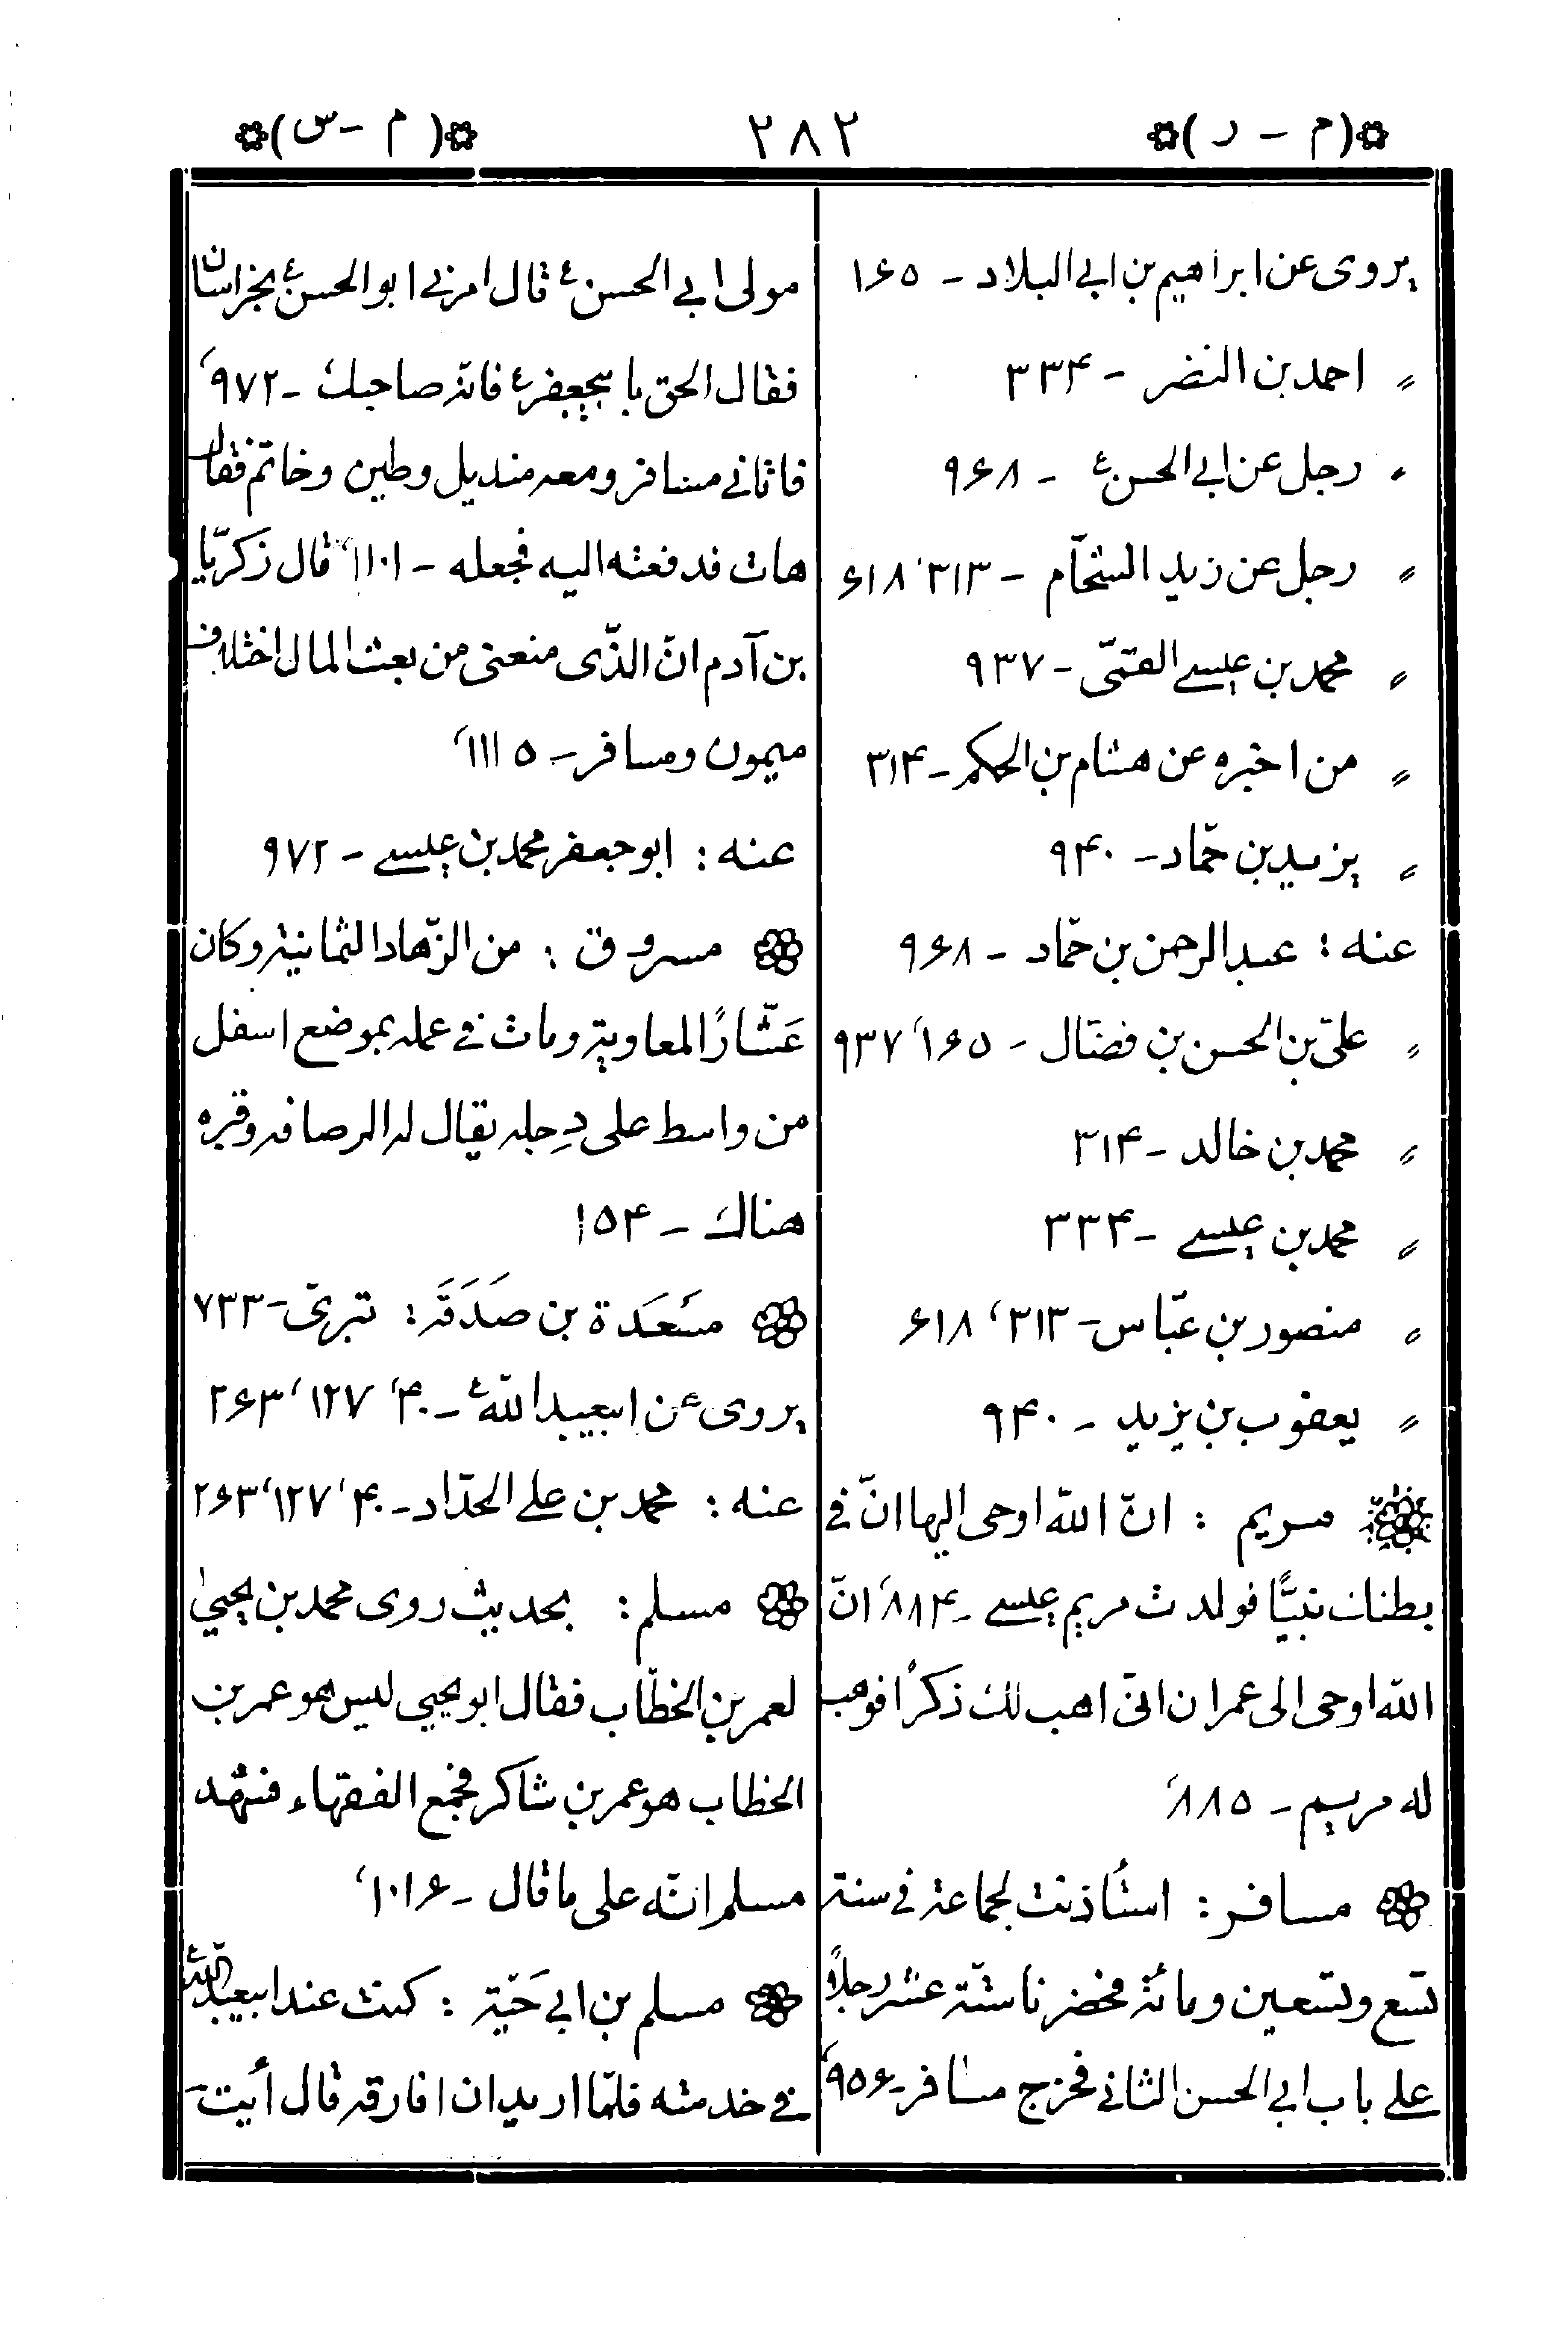 ❁(م - ر)❁
٢٨٢
❁(م - س)❁
يروى عن ابراهيم بن ابى البلاد - ١۶٥
〃 احمد بن النضر - ٣٣۴
〃 رجل عن ابى الحسن ع - ٩۶٨
〃 رجل عن زيد الشحّام - ٣١٣، ۶١٨
〃 محمد بن عيسى القمّى - ٩٣٧
〃 من اخبره عن هشام بن الحكم - ٣١۴
〃 يزيد بن حمّاد - ٩۴٠
عنه : عبد الرحمن بن حمّاد - ٩۶٨
〃 علىّ بن الحسن بن فضّال - ١۶٥، ٩٣٧
〃 محمد بن خالد - ٣١۴
〃 محمد بن عيسى - ٣٣۴
〃 منصور بن عبّاس - ٣١٣، ۶١٨
〃 يعقوب بن يزيد - ٩۴٠
❁ مريم : انّ اللّه اوحى اليها انّ فى
بطنك نبيًّا فولدت مريم عيسى - ٨٨۴، انّ
اللّه اوحى الى عمران انّى اهب لك ذكرًا فوهب
له مريم - ٨٨٥،
❁ مسافر : استأذنت لجماعة فى سنة
تسع وتسعين ومائة فحضرنا ستّة عشر رجلاً
على باب ابى الحسن الثانى فخرج مسافر - ٩٥۶،
مولى ابى الحسن ع قال امرنى ابو الحسن ع بخراسان
فقال الحق بابيجعفر ع فانّه صاحبك - ٩٧٢،
فاتانى مسافر ومعه منديل وطين وخاتم فقال
هات فدفعته اليه فجعله - ١١٠١، قال زكريّا
بن آدم انّ الذّى منعنى من بعث المال اختلاف
ميمون ومسافر - ١١١٥،
عنه : ابو جعفر محمد بن عيسى - ٩٧٢
❁ مسروق : من الزّهاد الثمانية وكان
عَشّارًا لمعاوية ومات فى عمله بموضع اسفل
من واسط على دِجله يقال له الرصافه وقبره
هناك - ١٥۴
❁ مَسْعَدَة بن صَدَقَة : بترىّ - ٧٣٣
يروى عن ابيعبد اللّه ع - ۴٠، ١٢٧، ٢۶٣
عنه : محمد بن على الحدّاد - ۴٠، ١٢٧، ٢۶٣
❁ مسلم : بحديث روى محمد بن يحيىٰ
لعمر بن الخطّاب فقال ابو يحيى ليس هو عمر بن
الخطاب هو عمر بن شاكر فجمع الفقهاء فشهد
مسلم انّه على ما قال - ١٠١۶،
❁ مسلم بن ابى حَيّة : كنت عند ابيعبد اللّه ع
فى خدمته فلمّا اريد ان افارقه قال أيت